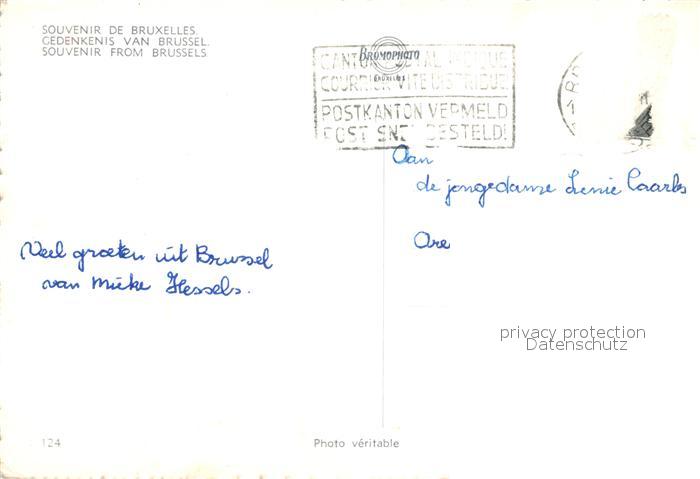 SOUVENIR DE BRUXELLES.
GEDENKENIS VAN BRUSSEL.
SOUVENIR FROM BRUSSELS.
BROMOPHOTO
BRUXELLES
CANTON POSTAL INDIQUE
COURRIER VITE DISTRIBUE
POSTKANTON VERMELD
POST SNEL BESTELD!
Aan
de jongedame Lenie Caarls
Veel groeten uit Brussel
van Mieke Hessels.
privacy protection
Datenschutz
124
Photo véritable